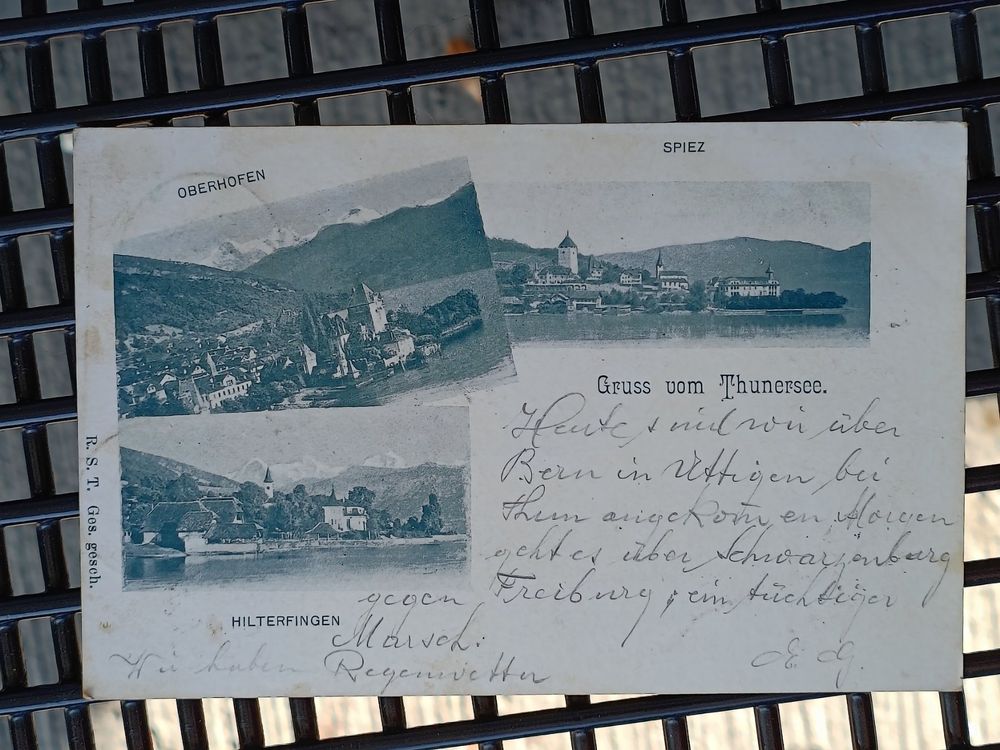 OBERHOFEN
SPIEZ
Gruss vom Thunersee.
Heute sind wir über
Bern in Uttigen bei
Thun angekom̄en, Morgen
geht es über Schwarzenburg
gegen Freiburg, ein tüchtiger
Marsch.
Wir haben Regenwetter
E. G.
HILTERFINGEN
R. S. T. Ges. gesch.